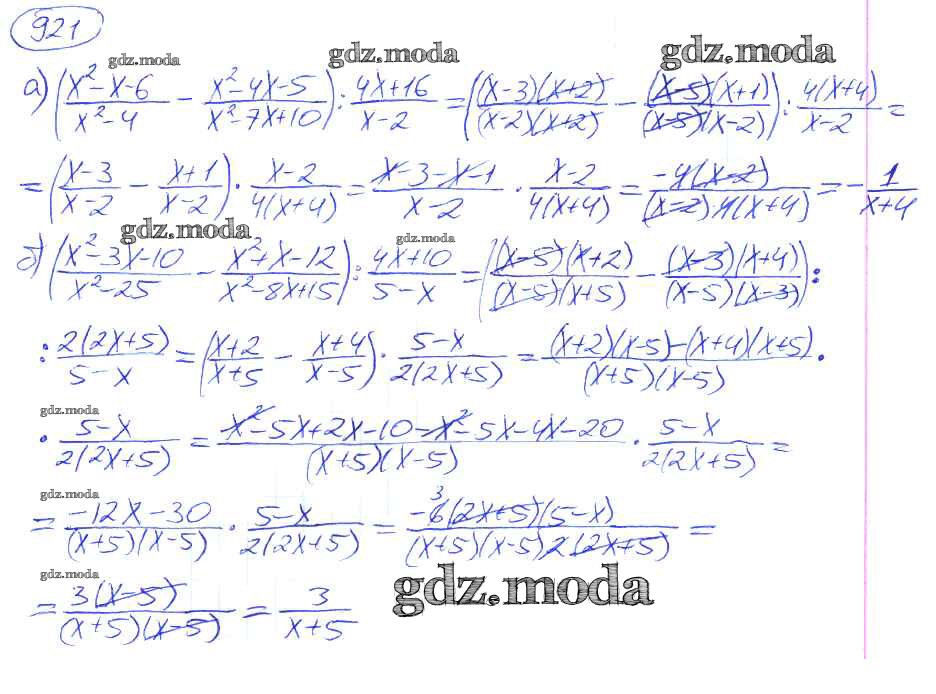 921
gdz.moda gdz.moda gdz.moda
а) ((x²-x-6)/(x²-4) - (x²-4x-5)/(x²-7x+10)) : (4x+16)/(x-2) = (((x-3)(x+2))/((x-2)(x+2)) - ((x-5)(x+1))/((x-5)(x-2))) : (4(x+4))/(x-2) =
= ((x-3)/(x-2) - (x+1)/(x-2)) · (x-2)/(4(x+4)) = (x-3-x-1)/(x-2) · (x-2)/(4(x+4)) = (-4(x-2))/((x-2)4(x+4)) = -1/(x+4)
gdz.moda gdz.moda
б) ((x²-3x-10)/(x²-25) - (x²+x-12)/(x²-8x+15)) : (4x+10)/(5-x) = (((x-5)(x+2))/((x-5)(x+5)) - ((x-3)(x+4))/((x-5)(x-3))) :
: (2(2x+5))/(5-x) = ((x+2)/(x+5) - (x+4)/(x-5)) · (5-x)/(2(2x+5)) = ((x+2)(x-5)-(x+4)(x+5))/((x+5)(x-5)) ·
gdz.moda
· (5-x)/(2(2x+5)) = (x²-5x+2x-10-x²-5x-4x-20)/((x+5)(x-5)) · (5-x)/(2(2x+5)) =
gdz.moda
= (-12x-30)/((x+5)(x-5)) · (5-x)/(2(2x+5)) = (-6 3(2x+5)(5-x))/((x+5)(x-5)2(2x+5)) =
gdz.moda gdz.moda
= (3(x-5))/((x+5)(x-5)) = 3/(x+5)